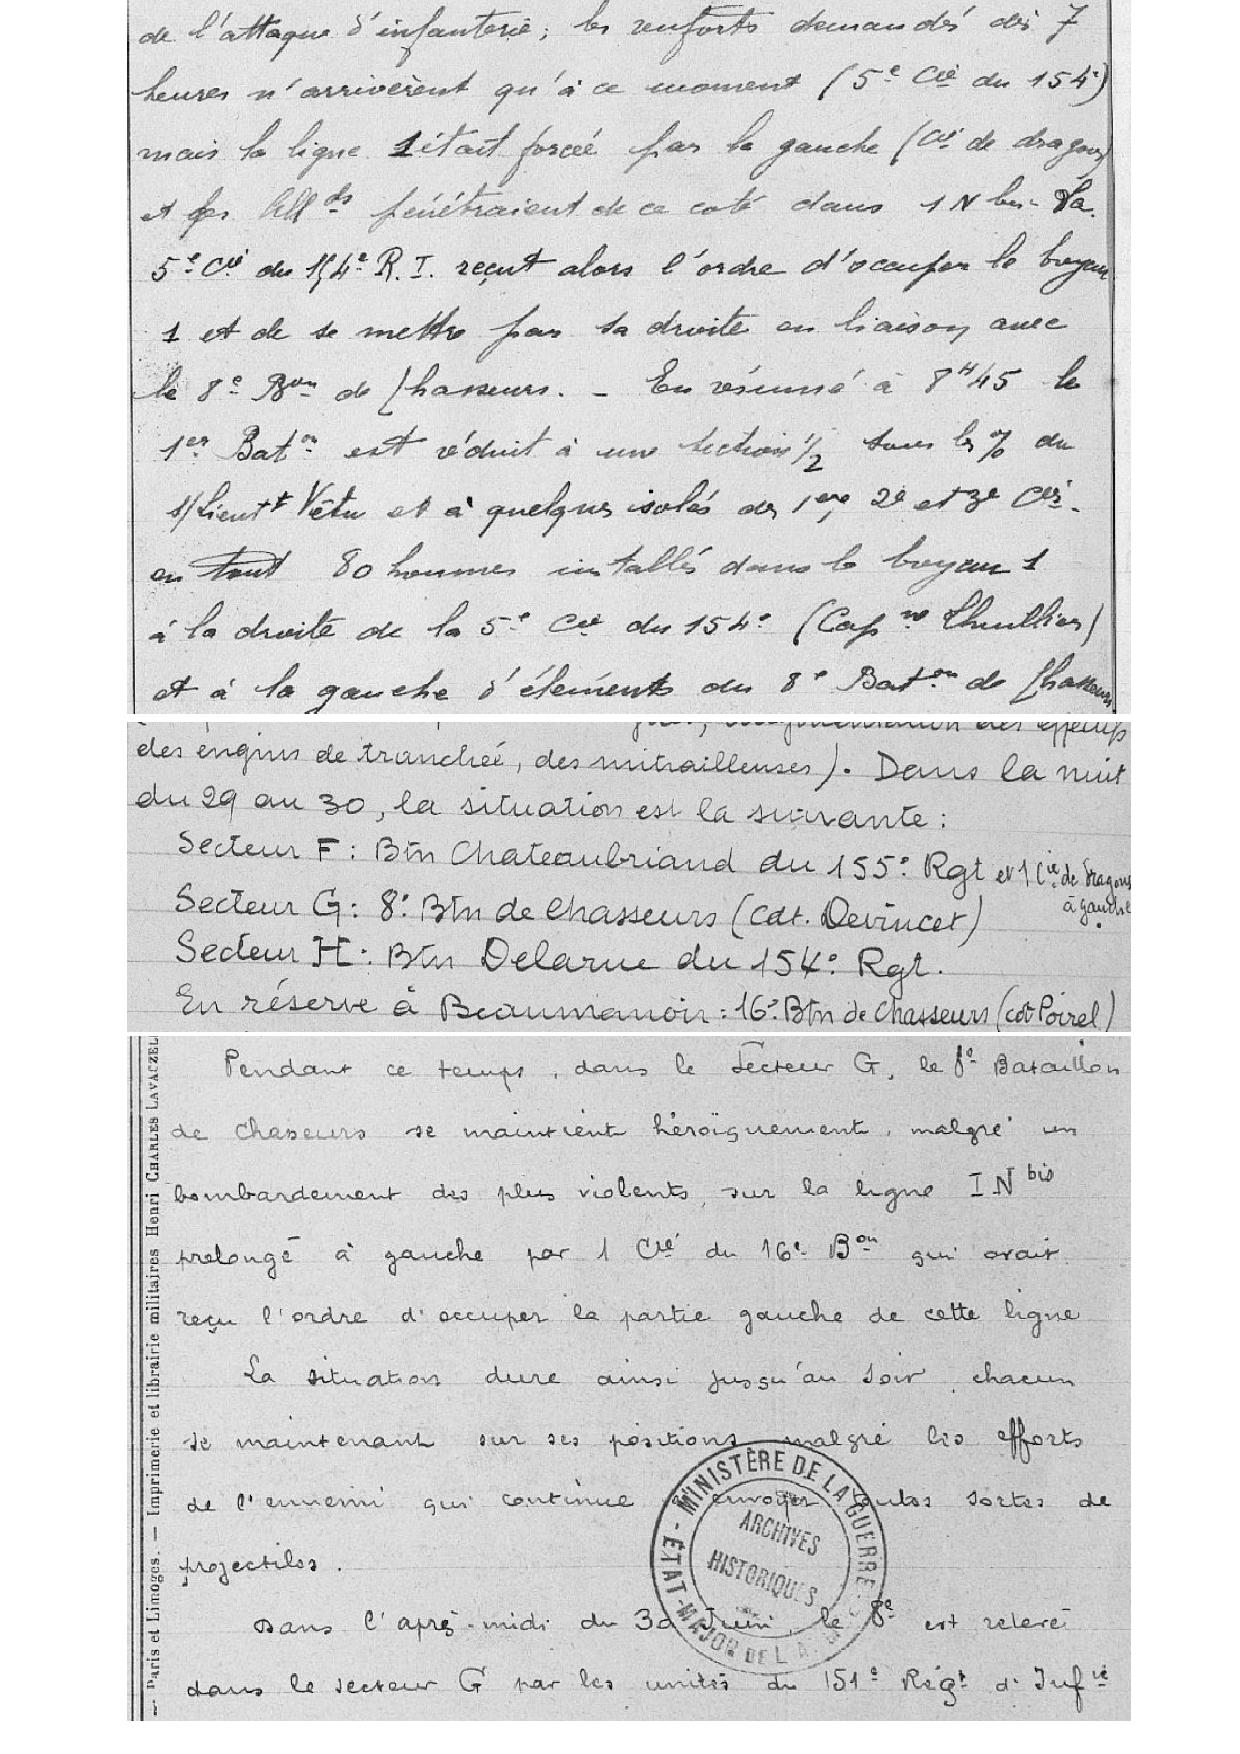 de l'attaque d'infanterie; les renforts demandés dès 7
heures n'arrivèrent qu'à ce moment (5e Cie du 154e)
mais la ligne 1 était forcée par la gauche (Cie de dragons)
et les Allds pénétraient de ce coté dans 1 N bis - La
5e Cie du 154e R.I. reçut alors l'ordre d'occuper le boyau
1 et de se mettre par sa droite en liaison avec
le 8e Bon de Chasseurs. - En résumé à 8H45 le
1er Baton est réduit à une section 1/2 sous les % du
s/Lieutt Vêtu et à quelques isolés des 1ere, 2e et 3e Cies -
en tout 80 hommes installés dans le boyau 1
à la droite de la 5e Cie du 154e (Capne Thuillier)
et à la gauche d'éléments du 8e Baton de Chasseurs
des engins de tranchée, des mitrailleuses). Dans la nuit
du 29 au 30, la situation est la suivante:
Secteur F: Btn Chateaubriand du 155e Rgt et 1 Cie de Dragons
à gauche.
Secteur G: 8e Btn de Chasseurs (Cdt. Devincet)
Secteur H: Btn Delarue du 154e Rgt.
En réserve à Beaumanoir: 16e Btn de Chasseurs (cdt Poirel)
Pendant ce temps, dans le Secteur G, le 8e Bataillon
de Chasseurs se maintient héroïquement, malgré un
bombardement des plus violents, sur la ligne I N bis
prolongé à gauche par 1 Cie du 16e Bon qui avait
reçu l'ordre d'occuper la partie gauche de cette ligne
La situation dure ainsi jusqu'au soir, chacun
se maintenant sur ses positions malgré les efforts
de l'ennemi qui continue à envoyer toutes sortes de
projectiles.
Dans l'après-midi du 30 Juin, le 8e est relevé
dans le secteur G par les unités du 151e Régt d'Infie
— Paris et Limoges. — Imprimerie et librairie militaires Henri CHARLES LAVAUZEL
MINISTÈRE DE LA GUERRE - ÉTAT-MAJOR DE L'A
ARCHIVES
HISTORIQUES